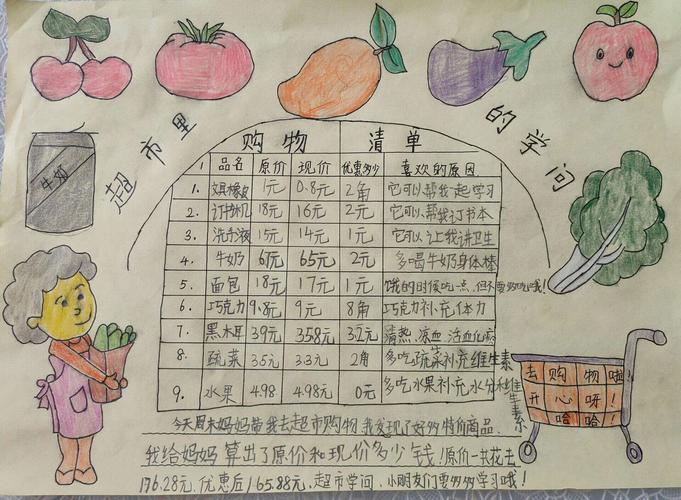 超市里
的学问
购物清单
品名 原价 现价 优惠多少 喜欢的原因
1. 文具橡皮 1元 0.8元 2角 它可以帮我一起学习
2. 订书机 18元 16元 2元 它可以帮我订书本
3. 洗手液 15元 14元 1元 它可以让我讲卫生
4. 牛奶 67元 65元 2元 多喝牛奶身体棒
5. 面包 18元 17元 1元 饿的时候吃一点，但不要多吃哦！
6. 巧克力 9.8元 9元 8角 巧克力补充体力
7. 黑木耳 39元 35.8元 3.2元 清热、凉血、活血化瘀
8. 蔬菜 3.5元 3.3元 2角 多吃蔬菜补充维生素
9. 水果 4.98 4.98元 0元 多吃水果补充水分和维生素
牛奶
去购物啦！
开心呀！
哈哈！
今天周末妈妈带我去超市购物，我发现了好多特价商品，
我给妈妈算出了原价和现价多少钱！原价一共花去
176.28元，优惠后165.88元，超市学问，小朋友们要多多学习哦！